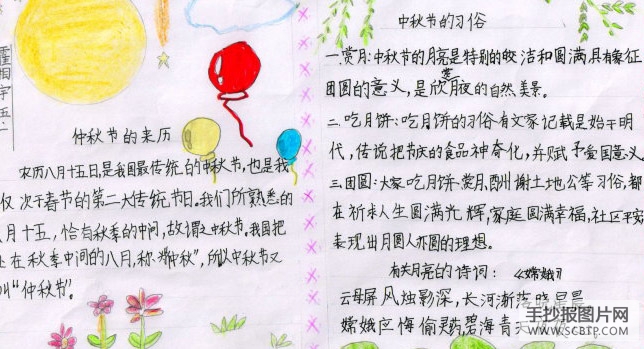 霍相宇五.一
仲秋节的来历
农历八月十五日,是我国最传统的中秋节,也是我
仅次于春节的第二大传统节日。我们所熟悉的
八月十五,恰有秋季的中间,故谓之中秋节。我国把
处在秋季中间的八月,称为"仲秋",所以中秋节又
叫"仲秋节"。
中秋节的习俗
一.赏月:中秋节的月亮是特别的皎洁和圆满具有象征
团圆的意义,是欣赏月夜的自然美景。
二.吃月饼:吃月饼的习俗有文家记载是始于明
代,传说把节庆的食品神奇化,并赋予爱国意义
三.团圆:大家吃月饼赏月,酬谢土地公等习俗,都
在祈求人生圆满光辉,家庭圆满幸福,社区平安
表现出月圆人亦圆的理想。
有关月亮的诗词:《嫦娥》
云母屏风烛影深,长河渐落晓星
嫦娥应悔偷灵药,碧海青天
手抄报图片网
WWW.SCBTP.COM